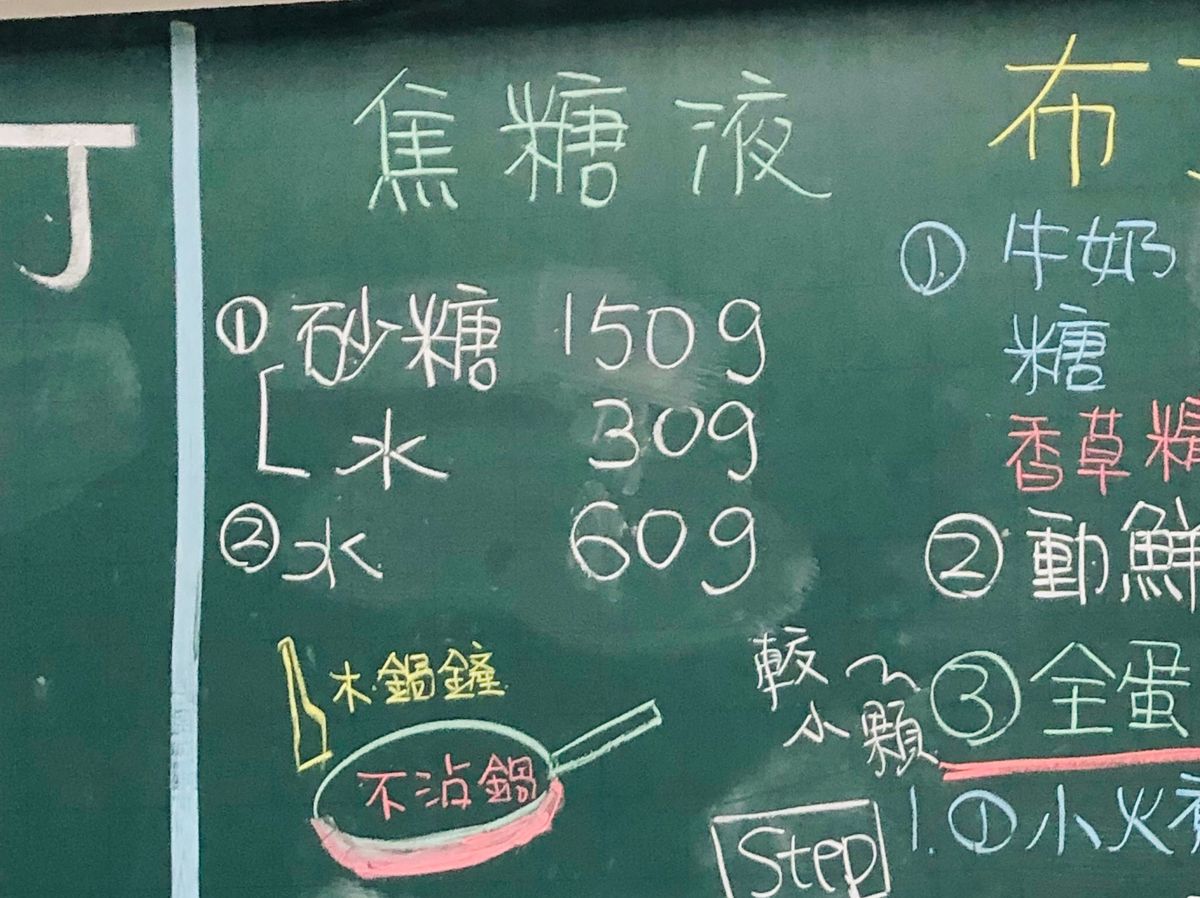 丁
焦糖液
① 砂糖 150g
水 30g
② 水 60g
木鍋鏟
不沾鍋
布丁
① 牛奶
糖
香草精
② 動鮮
較小顆
③ 全蛋
Step
1. ① 小火